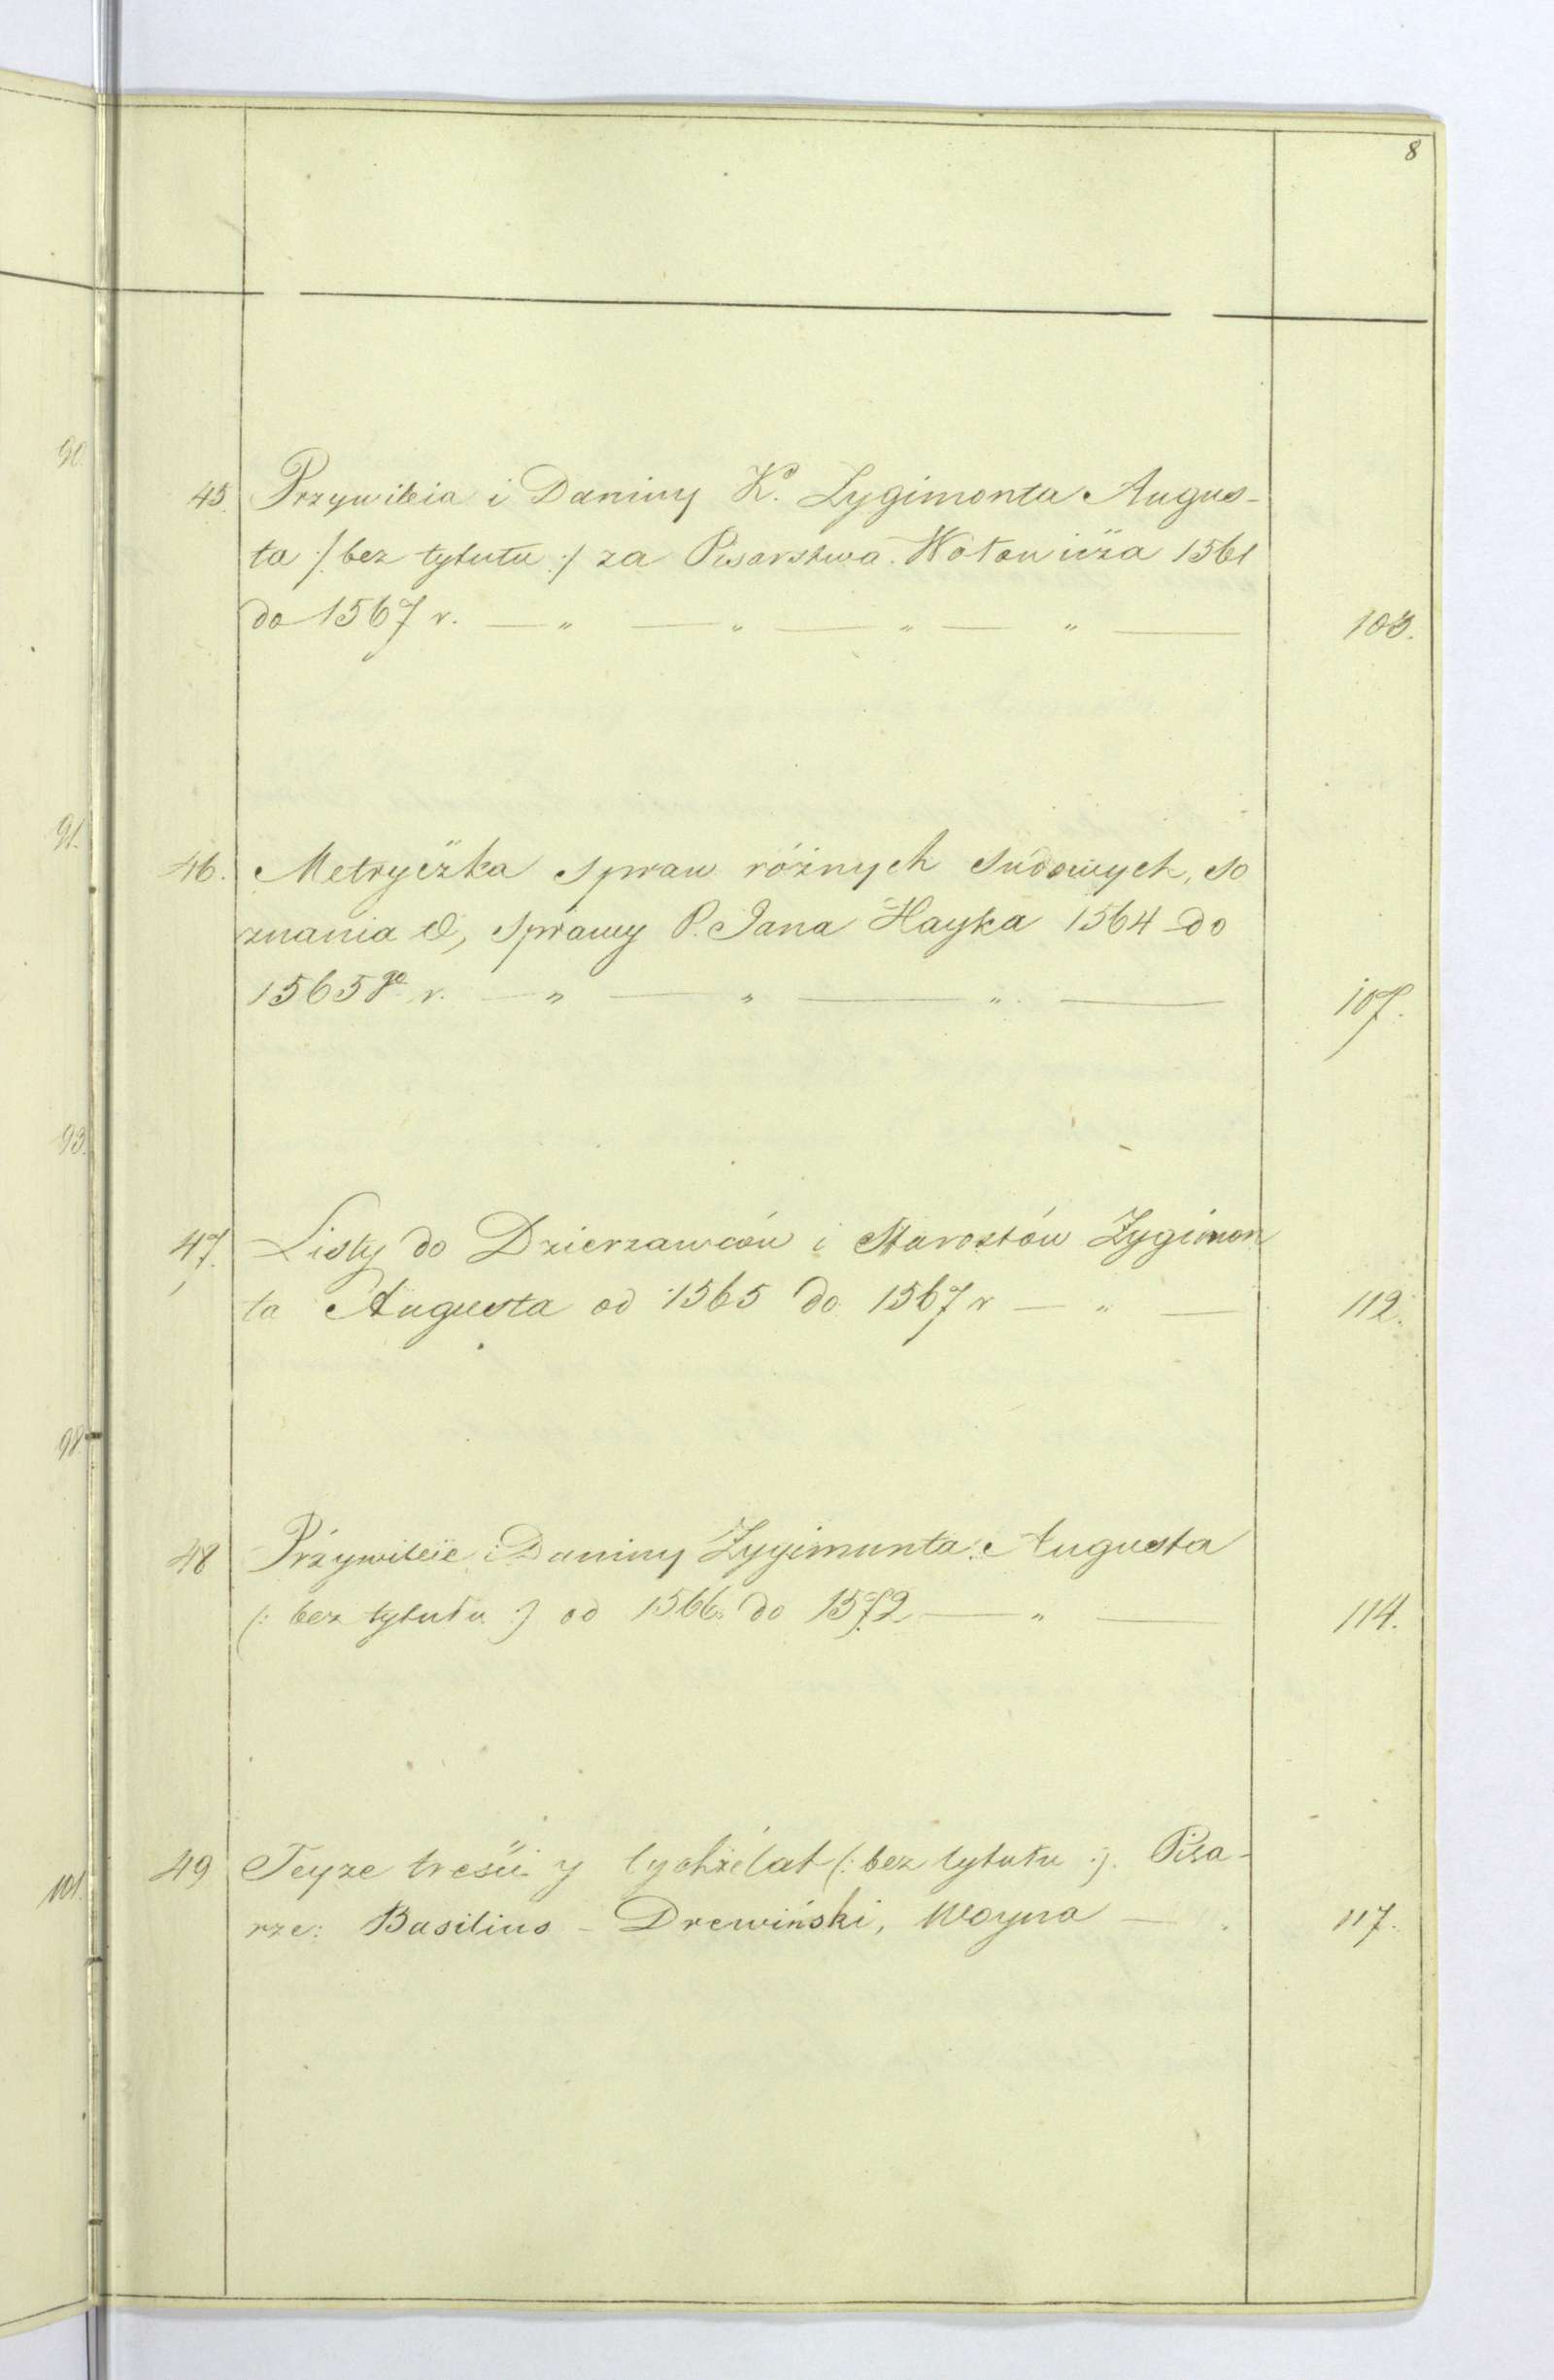 8
90.
45. Przywileia i Daniny K. Zygimonta Augus-
ta /: bez tytułu :/ za Pisarstwa Wołowicza 1561
do 1567 r. — „ — „ — „ — „ — 103.
91.
46. Metryczka spraw różnych sudowych, so
znania &, sprawy P. Jana Hayka 1564 do
1565go r. — „ — „ — „ — 107.
93.
47. Listy do Dzierzawców i Starostów Zygimon
ta Augusta od 1565 do 1567 r — „ — 112.
98.
48 Przywileie i Daniny Zygimunta Augusta
(: bez tytułu :) od 1566 do 1572 — „ — 114.
49 Teyze treści y tychże lat (: bez tytułu :). Pisa-
101.
rze: Basilius – Drewiński, Woyna — 117.